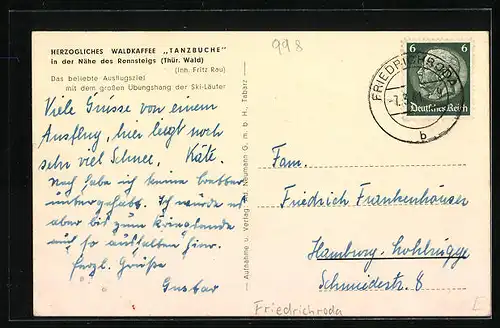 HERZOGLICHES WALDKAFFEE „TANZBUCHE"
in der Nähe des Rennsteigs (Thür. Wald)
(Inh. Fritz Rau)
Das beliebte Ausflugsziel
mit dem großen Übungshang der Ski-Läufer
998
Viele Grüsse von einem
Ausflug, hier liegt noch
sehr viel Schnee. Käte.
Noch habe ich keine
Ich würde es
aber bis zum
auch so aushalten hier.
herzl. Grüße
Gustav
Aufnahme u. Verlag Neumann G. m. b. H., Tabarz
6 6
Deutsches Reich
FRIEDRICHRODA
b
Fam.
Friedrich Frankenhäuser
Hamburg-
Schmiedestr. 8
Friedrichroda
E